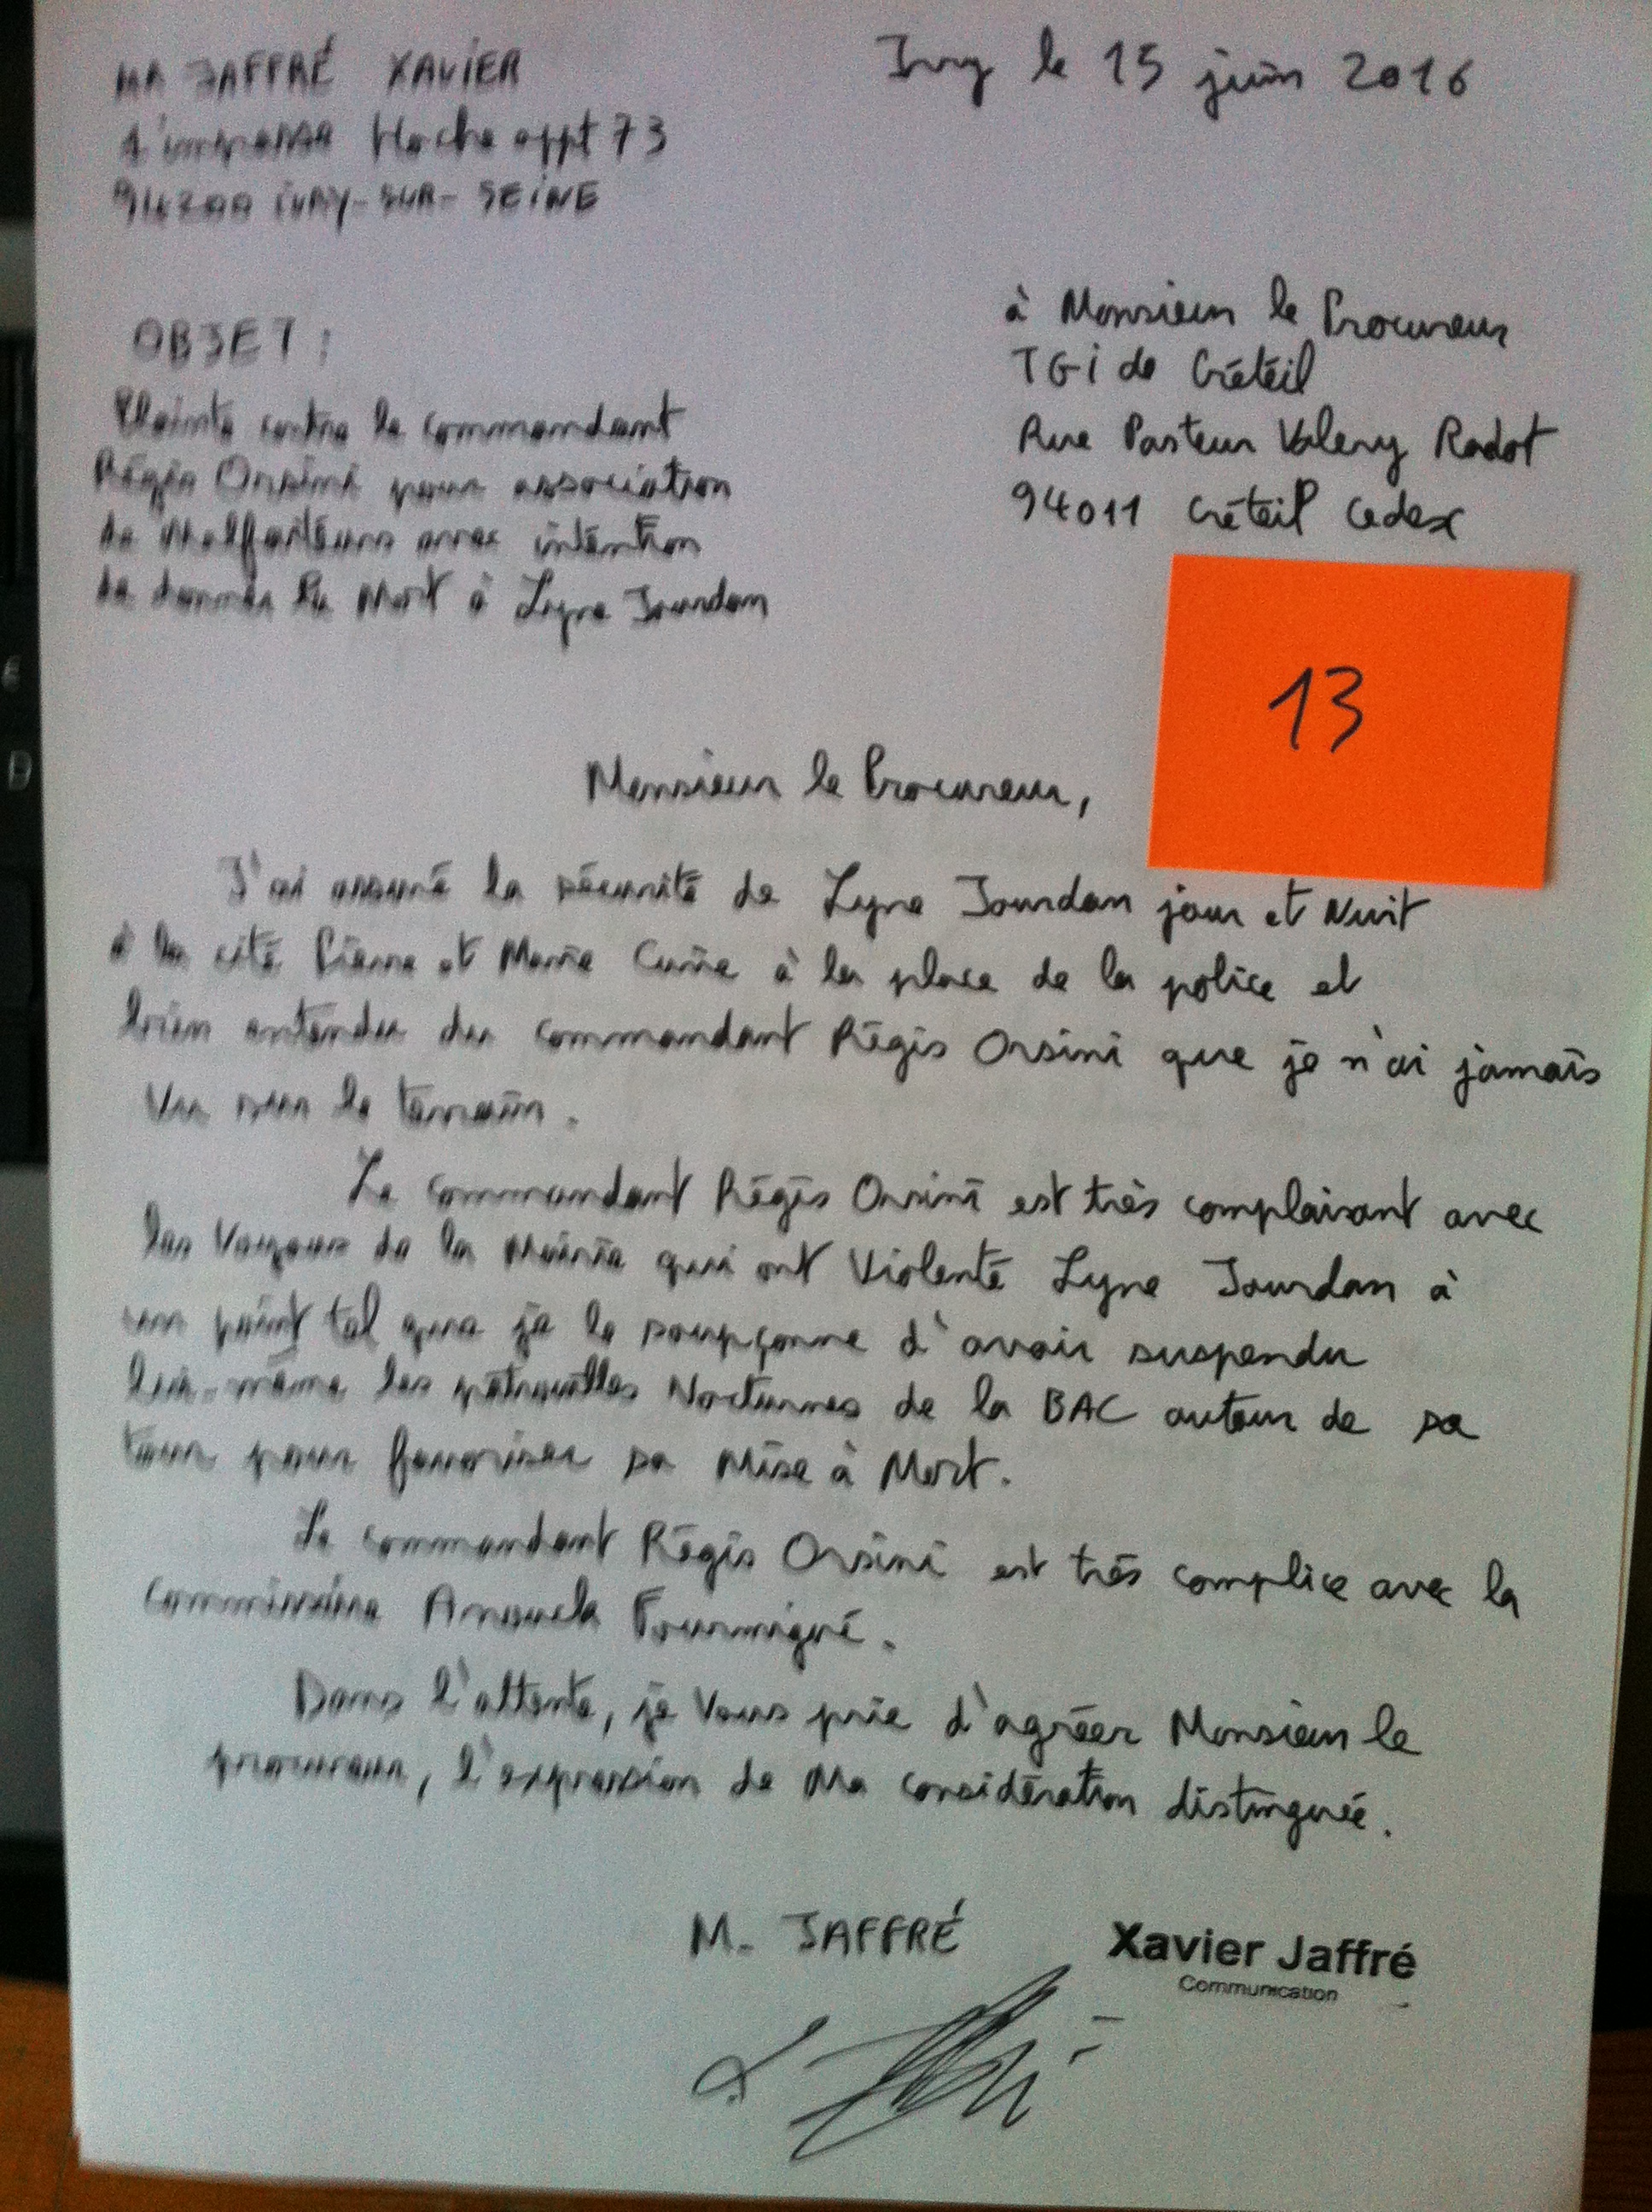 MR JAFFRÉ XAVIER
1 impasse Hoche appt 73
94200 IVRY-SUR-SEINE
Ivry le 15 juin 2016
OBJET :
Plainte contre le commandant
Régis Orsini pour association
de Malfaiteurs avec intention
de donner la Mort à Lyne Jourdan
à Monsieur le Procureur
TGI de Créteil
Rue Pasteur Valery Radot
94011 Créteil Cedex
13
Monsieur le Procureur,
J'ai assuré la sécurité de Lyne Jourdan jour et Nuit
à la cité Pierre et Marie Curie à la place de la police et
bien entendu du commandant Régis Orsini que je n'ai jamais
Vu sur le terrain.
Le commandant Régis Orsini est très complaisant avec
les Voyous de la Mairie qui ont Violenté Lyne Jourdan à
un point tel que je le soupçonne d'avoir suspendu
lui-même les patrouilles Nocturnes de la BAC autour de sa
tour pour favoriser sa Mise à Mort.
Le commandant Régis Orsini est très complice avec la
commissaire Fourmigué.
Dans l'attente, je Vous prie d'agréer Monsieur le
procureur, l'expression de Ma considération distinguée.
M. JAFFRÉ
Xavier Jaffré
Communication